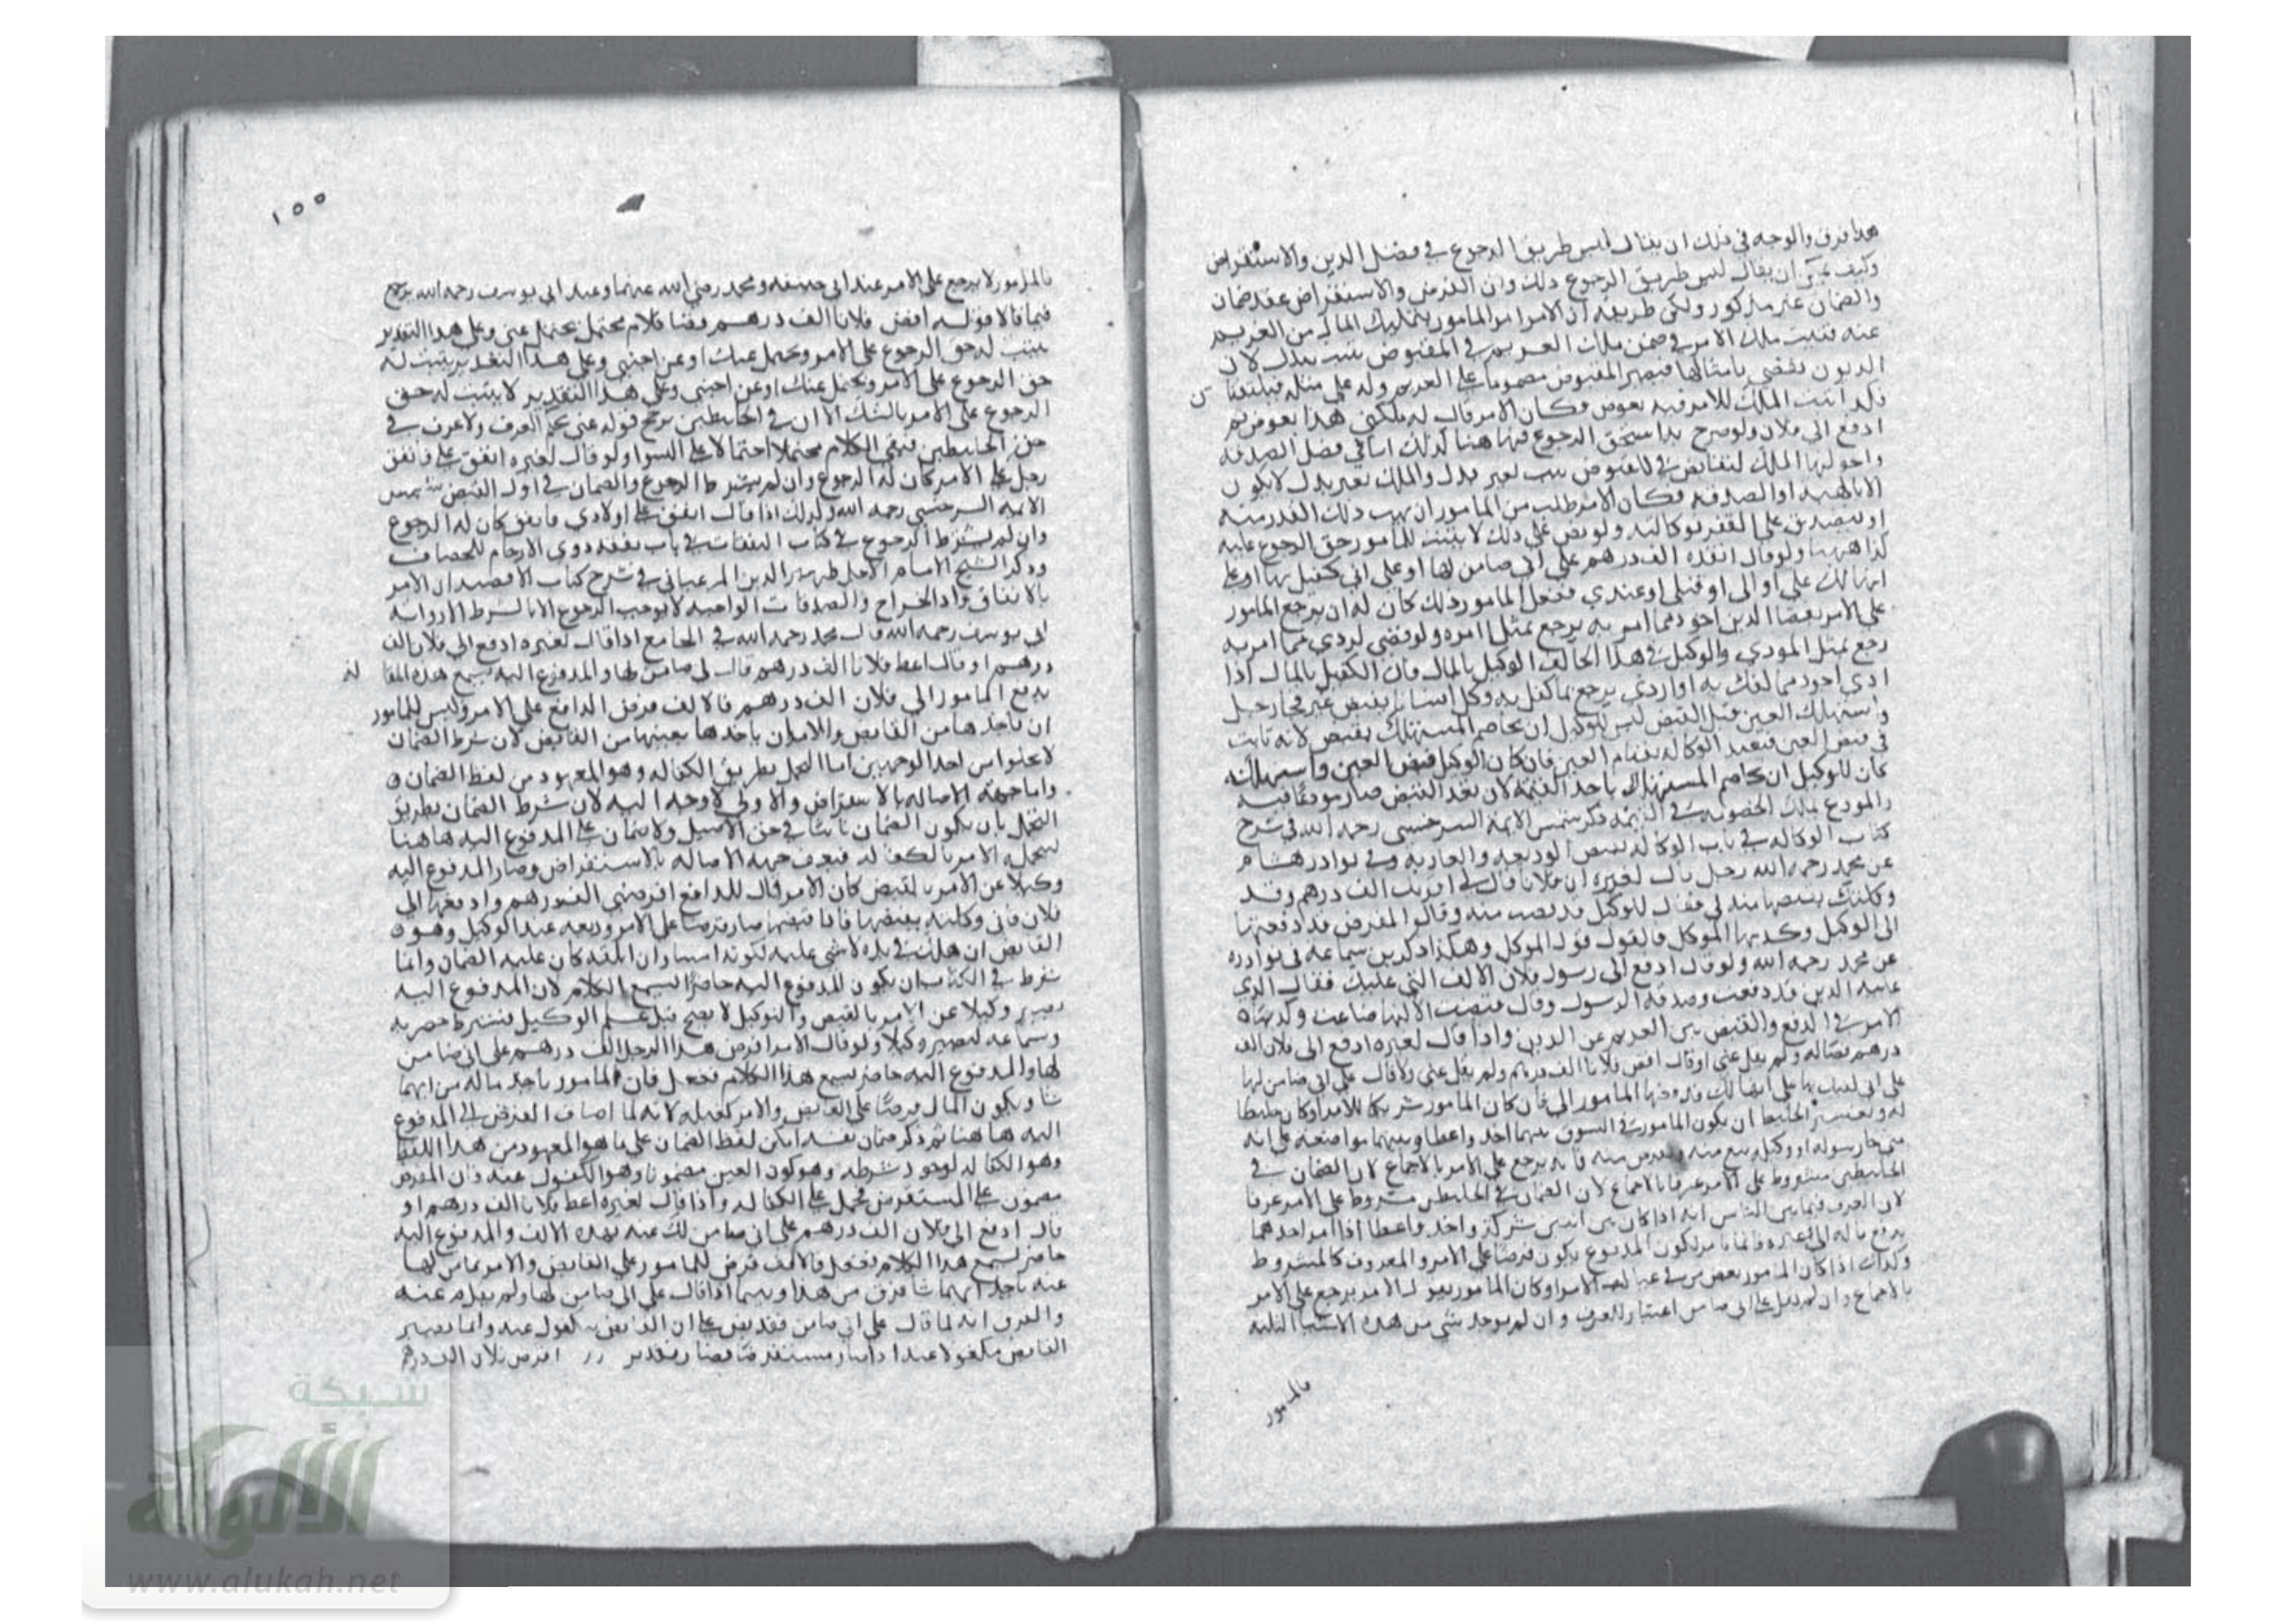 هذا فرق والوجه في ذلك ان يقال ليس طريق الرجوع في فصل الدين والاستقراض
وكيف يمكن ان يقال ليس طريق الرجوع ذلك وان القرض والاستقراض عقد ضمان
والضمان غير مذكور ولكن طريقه ان الامر امر المامور بتمليك المال من الغريم
عنه فثبت ملك الامر في ضمن ملك الغريم في المقبوض يثبت ببدل لان
الديون تقضى بامثالها فيصير المقبوض مضمونا على الغريم وله على مثله فيلتقيا
فكذا يثبت الملك للامر فيه بعوض وكان الامر قال له ملكني هذا بعوض ثم
ادفع الى فلان ولو صرح بهذا يستحق الرجوع فيها هنا كذلك اما في فصل الصدقة
الملك للقابض في المقبوض يثبت بغير بدل والملك بغير بدل لا يكون
الا بالهبة او الصدقة فكان الامر طلب من المامور ان يهب ذلك القدر منه
او يتصدق على الفقير بوكالته ولو نص على ذلك لا يثبت للمامور حق الرجوع عليه
كذا ههنا ولو قال انقده الف درهم على اني ضامن لها او على اني كفيل بها او على
انها لك علي او الي او قبلي او عندي ففعل المامور ذلك كان له ان يرجع المامور
على الامر بقضا الدين اجود مما امر به يرجع بمثل ما امره ولو قضى اردى مما امر به
رجع بمثل المودى والوكيل في هذا الحالف الوكيل بالمال فان الكفيل بالمال اذا
ادى اجود مما كفل به او اردى يرجع بما كفل به وكل انسانا بقبض عين فجا رجل
واستهلك العين قبل القبض ليس للوكيل ان يخاصم المستهلك بقبض لانه نايب
في قبض العين فيعتد الوكالة بقيام العين فان كان الوكيل قبض العين واستهلكه
كان للوكيل ان يخاصم المستهلك باخذ القيمة لان بعد القبض صار مودعا فيه
والمودع يملك الخصومة في القيمة ذكر شمس الايمة السرخسي رحمه الله في شرح
كتاب الوكالة في باب الوكالة بقبض الوديعة والعارية وفي نوادر هشام
عن محمد رحمه الله رجل قال لغيره ان فلانا قال لي اقرضك الف درهم وقد
وكلتك بقبضها منه لي فقال الوكيل قد قبضت منه وقالوا المقرض قد دفعتها
الى الوكيل وكذبها الموكل فالقول قول الموكل وهكذا ذكر ابن سماعة في نوادره
عن محمد رحمه الله ولو قال ادفع الى رسول فلان الالف التي عليك فقال الذي
عليه الدين قد دفعت وصدقه الرسول وقال قبضت الا انها ضاعت وكذبهما
الامر في الدفع والقبض برئ الغريم عن الدين واذا قال لغيره ادفع الى فلان الف
درهم قضا له ولم يقل عني او قال اقض فلانا الف درهم ولم يقل عني ولا قال على اني ضامن لها
له وتفسير الخليط ان يكون المامور في السوق بينهما اخذ واعطا وبينهما مواضعة على انه
متى جا رسوله او وكيله يبيع منه ويقرض منه فانه يرجع على الامر بالاجماع لان الضمان في
الخليطين مشروط على الامر عرفا بالاجماع لان الضمان في الخليطين مشروط على الامر عرفا
لان العرف فيما بين الناس انه اذا كان بين اثنين شركة واخذ واعطا اذا امر احدهما
يدفع ماله الى غيره فانما يامر ليكون المدفوع يكون قرضا على الامر والمعروف كالمشروط
وكذلك اذا كان المامور بعض من في عيال الامر او كان المامور يعول الامر يرجع على الامر
بالاجماع وان لم يقل على اني ضامن اعتبار للعرف وان لم يوجد شي من هذه الاشيا الثلثة
فالمامور
١٥٥
فالمامور لا يرجع على الامر عند ابي حنيفة ومحمد رضي الله عنهما وعند ابي يوسف رحمه الله يرجع
فيما قالا قوله اقض فلانا الف درهم وقفنا كلام محتمل يحتمل عني وعلى هذا التقدير
يثبت له حق الرجوع على الامر ويحتمل عنك او عن اجنبي وعلى هذا التقدير يثبت له
حق الرجوع على الامر ويحتمل عنك او عن اجنبي وعلى هذا التقدير لا يثبت له حق
الرجوع على الامر بالشك الا ان في الخليطين ترجح قوله عني بحكم العرف ولا عرف في
حق الخليطين فبقي الكلام محتملا احتمالا على السوا ولو قال لغيره انفق علي فانفق
رجل على الامر كان له الرجوع وان لم يشترط الرجوع والضمان في اول القبض شمس
الايمة السرخسي رحمه الله وكذلك اذا قال انفق على اولادي فانفق كان له الرجوع
وان لم يشترط الرجوع في كتاب النفقات في باب نفقة ذوي الارحام للخصاف
وذكر الشيخ الامام الاجل ظهير الدين المرغيناني في شرح كتاب الاقضية ان الامر
بالانفاق وادا الخراج والصدقات الواجبة لا يوجب الرجوع الا بالشرط الا رواية
ابي يوسف رحمه الله قال محمد رحمه الله في الجامع اذا قال لغيره ادفع الى فلان الف
درهم او قال اعط فلانا الف درهم قال لي ضامن لها والمدفوع اليه يسمع هذه المقالة
فدفع المامور الى فلان الف درهم فالالف قرض الدافع على الامر وليس للمامور
ان ياخذها من القابض وللامر ان ياخذها بعينها من القابض لان شرط الضمان
لا يخلوا من احد الوجهين اما التحمل بطريق الكفالة وهو المعهود من لفظ الضمان
واما جهة الاصالة بالاستقراض والاولى لا وجه اليه لان شرط الضمان بطريق
التحمل بان يكون الضمان ثابتا في حق الاصيل ولا ضمان على المدفوع اليه ها هنا
لتحمله الامر بالكفالة فتعرف جهة الاصالة بالاستقراض وصار المدفوع اليه
وكيلا عن الامر بالقبض كان الامر قال للدافع اقرضني الف درهم وادفعها الى
فلان فاني وكلته بقبضها فاذا قبضها صار قرضا على الامر وديعة عند الوكيل وهو
القابض ان هلك في يده لا شي عليه لكونه امينا وان انفقه كان عليه الضمان وانما
شرط في الكتاب ان يكون المدفوع اليه حاضرا يسمع الكلام لان المدفوع اليه
يصير وكيلا عن الامر بالقبض والتوكيل لا يصح قبل علم الوكيل فشرط حضرته
وسماعه ليصير وكيلا ولو قال الامر اقرض هذا الرجل الف درهم على اني ضامن
لها والمدفوع اليه حاضر يسمع هذا الكلام ففعل فان المامور ياخذ ماله من ايهما
شا ويكون المال قرضا على القابض والامر كفيله لانه لما اضاف القرض الى المدفوع
اليه ها هنا ثم ذكر ضمان نفسه امكن لفظ الضمان على ما هو المعهود من هذا اللفظ
وهو الكفالة لوجود شرطه وهو كون العين مضمونا وهو المكفول عنه فان القرض
مضمون على المستقرض فحمل على الكفالة واذا قال لغيره اعط فلانا الف درهم او
قال ادفع الى فلان الف درهم على اني ضامن لك عنه بهذه الالف والمدفوع اليه
حاضر يسمع هذا الكلام ففعل فالالف قرض للمامور على القابض والامر ضامن لها
عنه ياخذ ايهما شا فرق من هذا وبينما اذا قال على اني ضامن لها ولم يقل عنه
والفرق انه لما قال على اني ضامن فقد نص على ان القابض مكفول عنه وانما يصير
القابض مكفولا عنه اذا صار مستقرضا فصار تقدير اقرض فلان الف درهم
شبكة
الألوكة
www.alukah.net